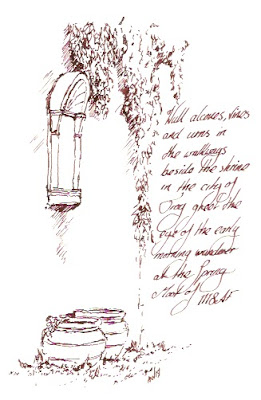 Wall alcoves, vines
and urns in
the walkways
beside the shrine
in the city of
greet the
eye of the early
morning wanderer
at the Spring
of